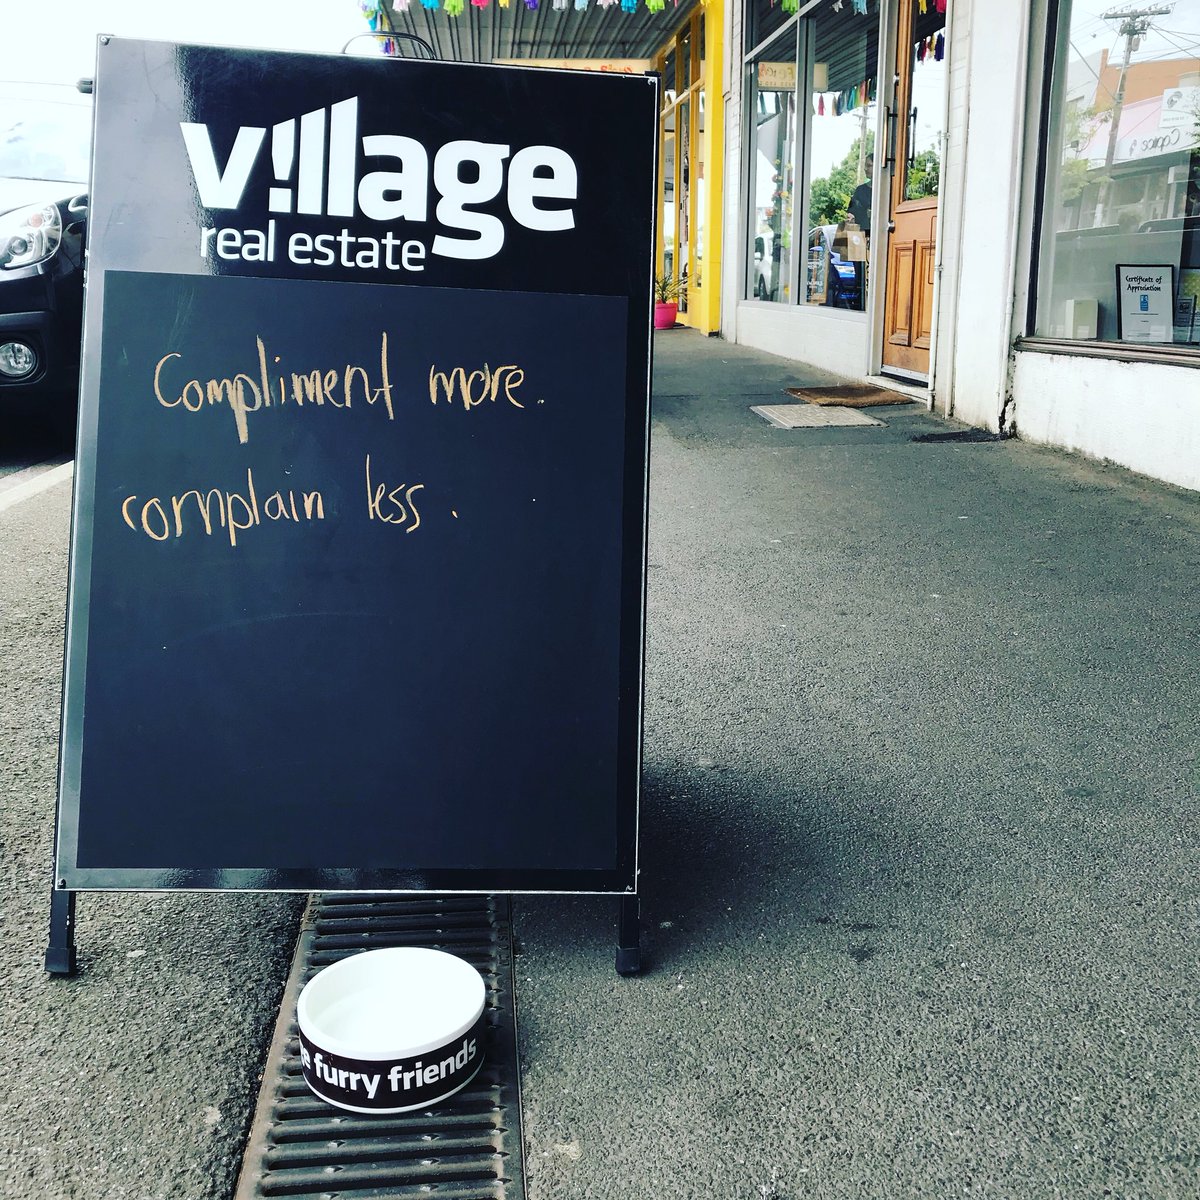 village
real estate
Compliment more.
complain less.
Certificate of
Appreciation
furry friends